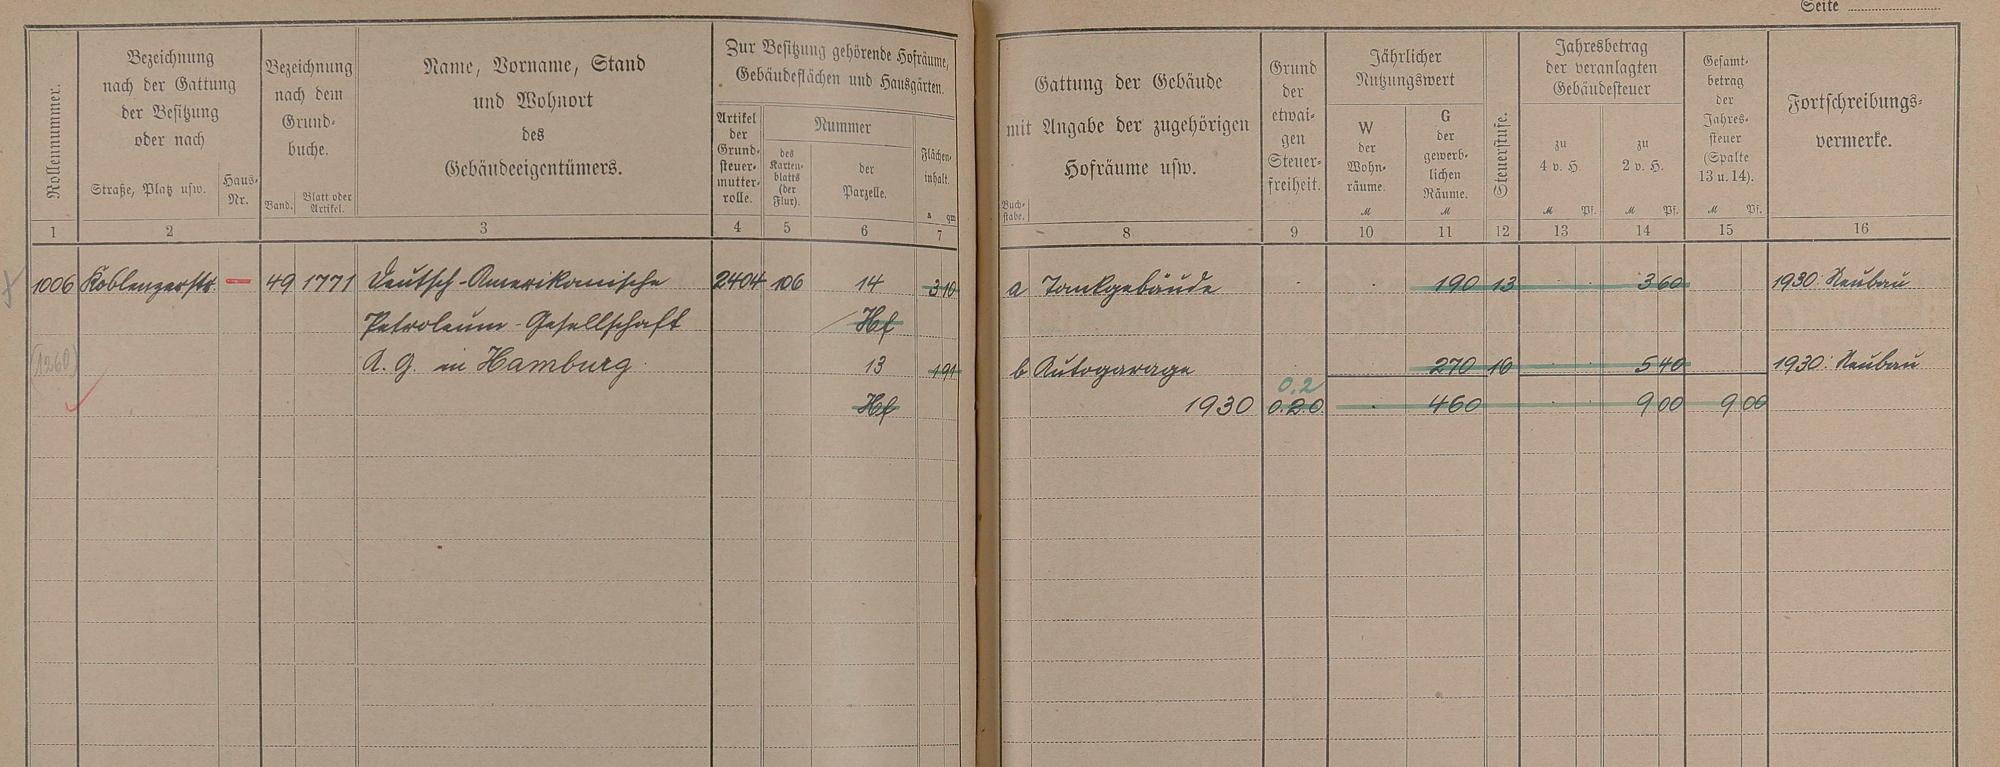 Seite
Rollennummer.
Bezeichnung
nach der Gattung
der Besitzung
oder nach
Straße, Platz usw.
Haus-
Nr.
Bezeichnung
nach dem
Grund-
buche.
Band.
Blatt oder
Artikel.
Name, Vorname, Stand
und Wohnort
des
Gebäudeeigentümers.
Zur Besitzung gehörende Hofräume,
Gebäudeflächen und Hausgärten.
Artikel
der
Grund-
steuer-
mutter-
rolle.
Nummer
des
Karten-
blatts
(der
Flur).
der
Parzelle.
Flächen-
inhalt.
a qm
Gattung der Gebäude
mit Angabe der zugehörigen
Hofräume usw.
Buch-
stabe.
Grund
der
etwai-
gen
Steuer-
freiheit.
Jährlicher
Nutzungswert
W
der
Wohn-
räume.
M
G
der
gewerb-
lichen
Räume.
M
Steuerstufe.
Jahresbetrag
der veranlagten
Gebäudesteuer
zu
4 v. H.
M Pf.
zu
2 v. H.
M Pf.
Gesamt-
betrag
der
Jahres-
steuer
(Spalte
13 u. 14).
M Pf.
Fortschreibungs-
vermerke.
1 2 3 4 5 6 7 8 9 10 11 12 13 14 15 16
1006 Koblenzerstr. — 49 1771 Deutsch-Amerikanische 2404 106 14 3 10 a Tankgebäude 190 13 3 60 1930: Neubau
Petroleum-Gesellschaft Hf
(1260) A. G. in Hamburg. 13 1 91 b Autogarage 270 16 5 40 1930: Neubau
0.2
Hf 1930 0.2.0 460 9 00 9 00